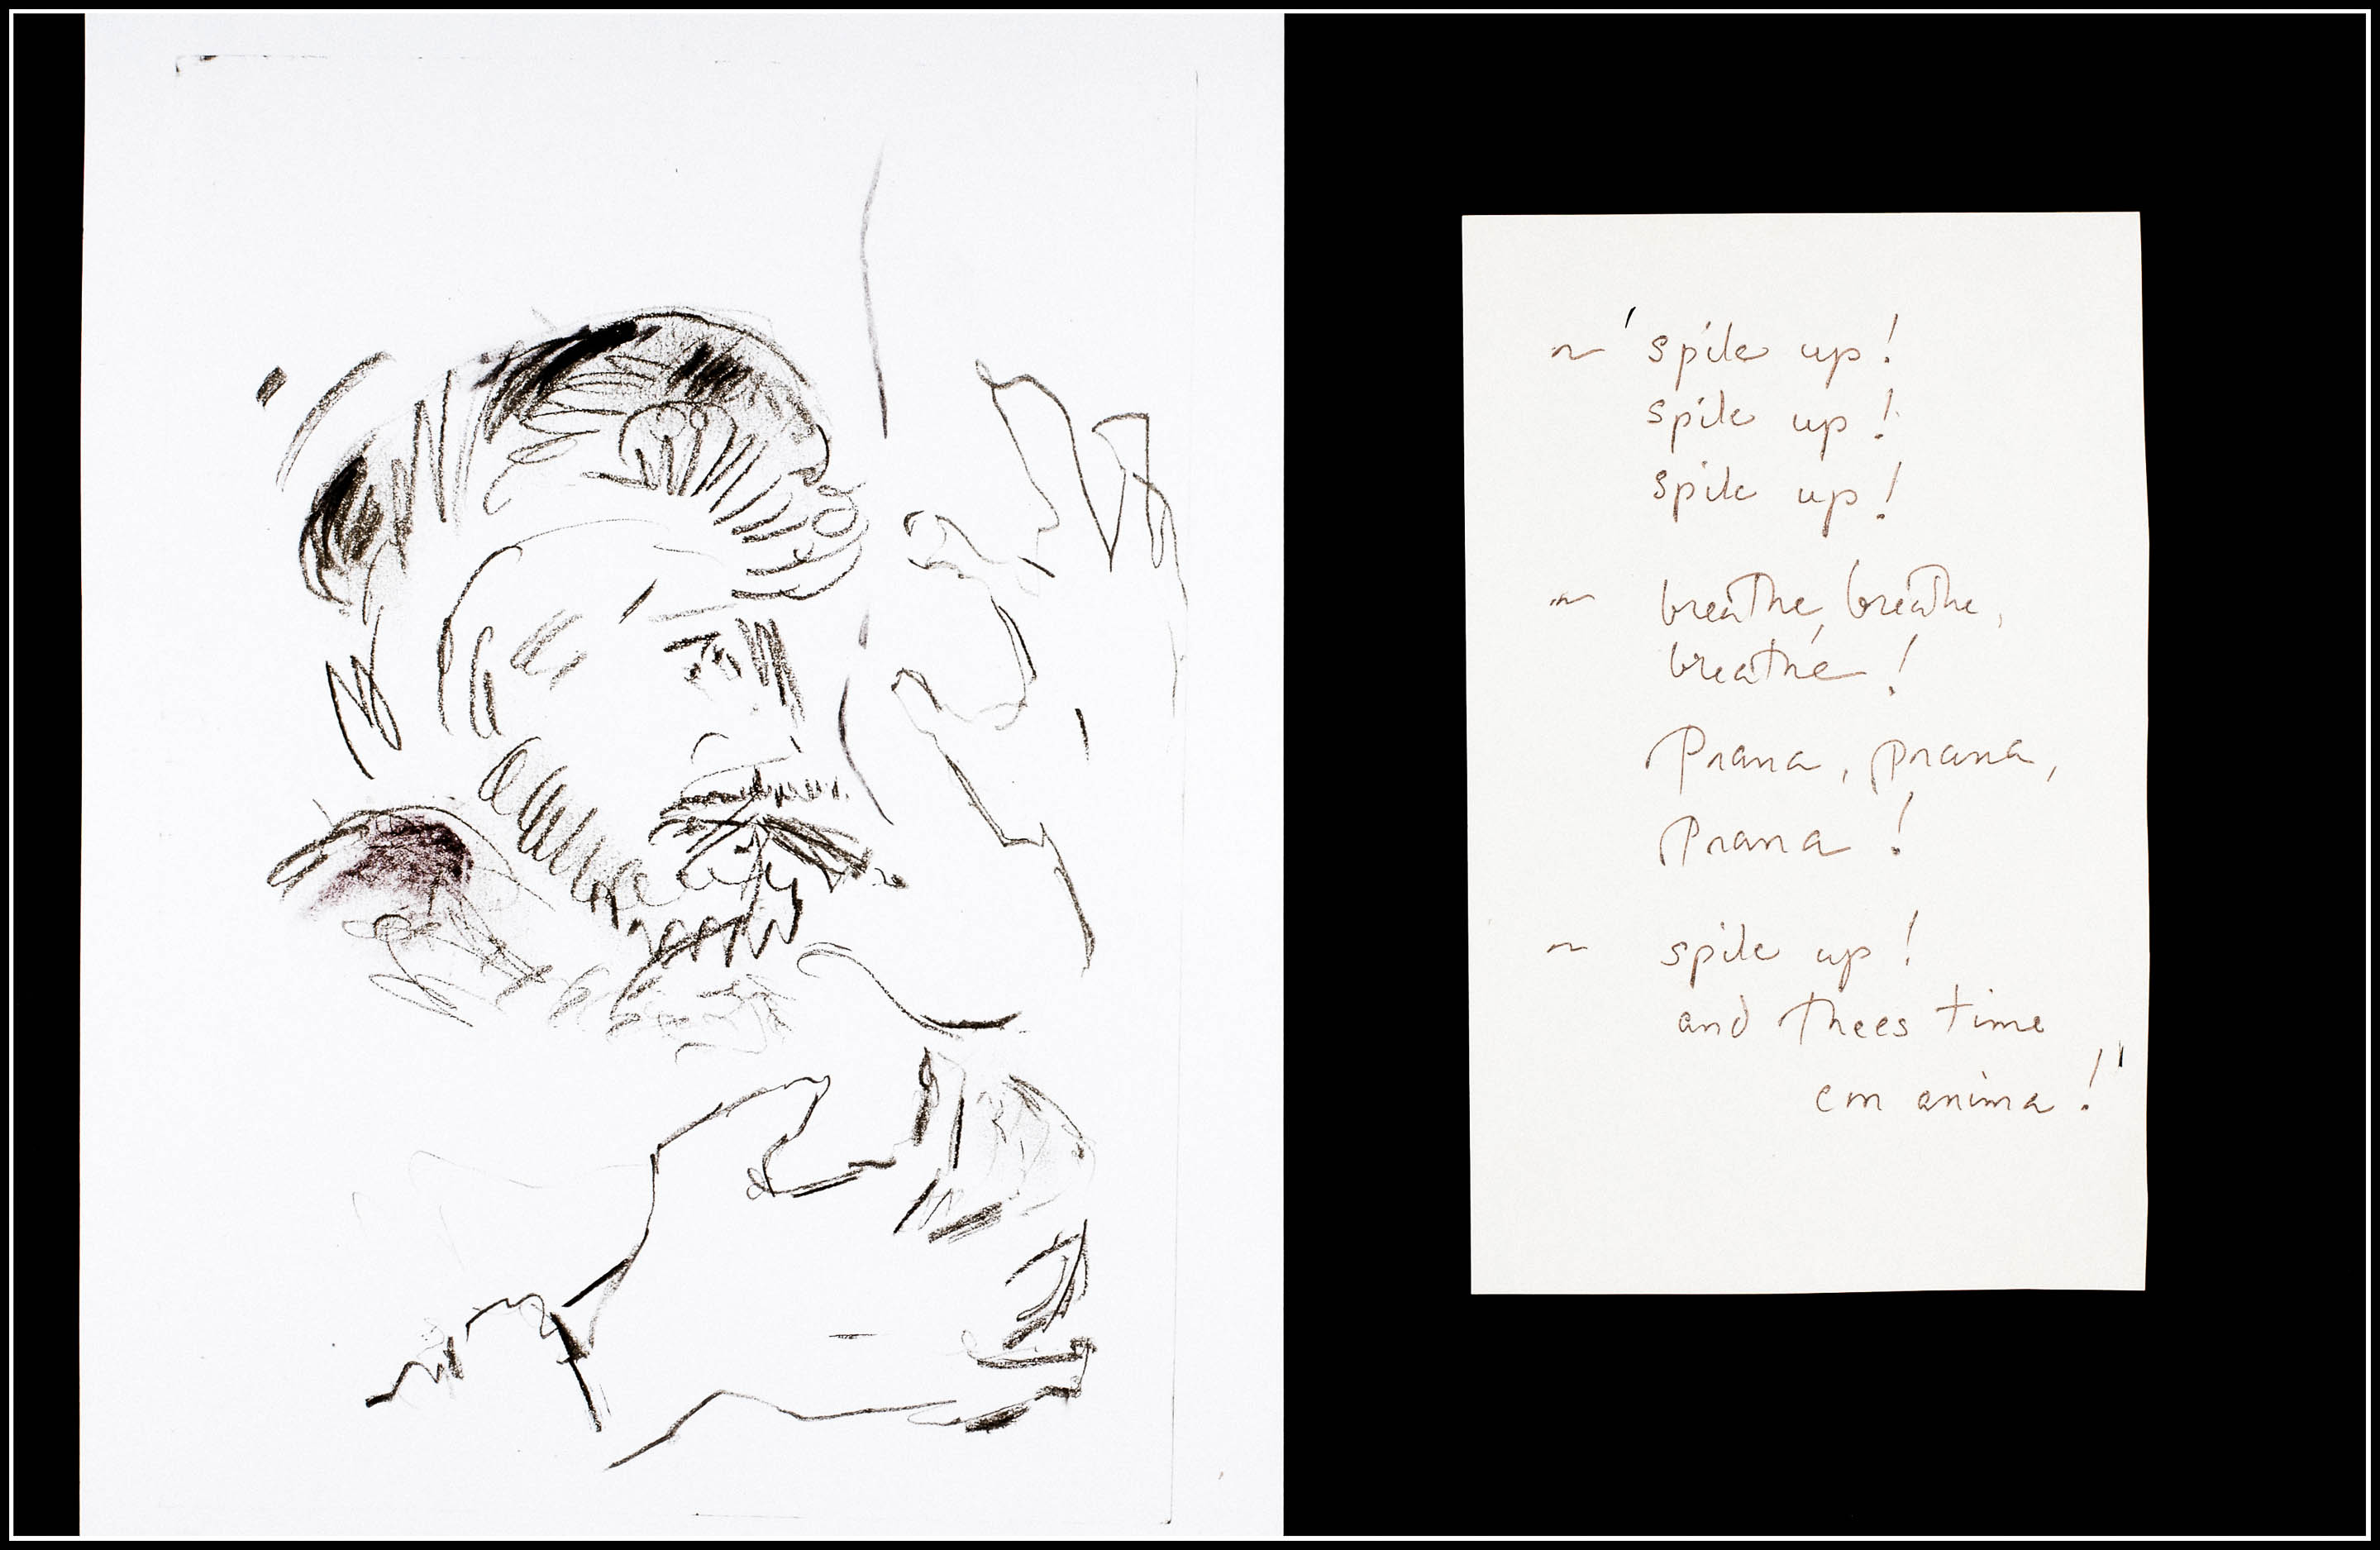 ~ 'spile up!
spile up!
spile up!
~ breathe, breathe,
breathe!
Prana, prana,
Prana!
~ spile up!
and thees time
em anima!'